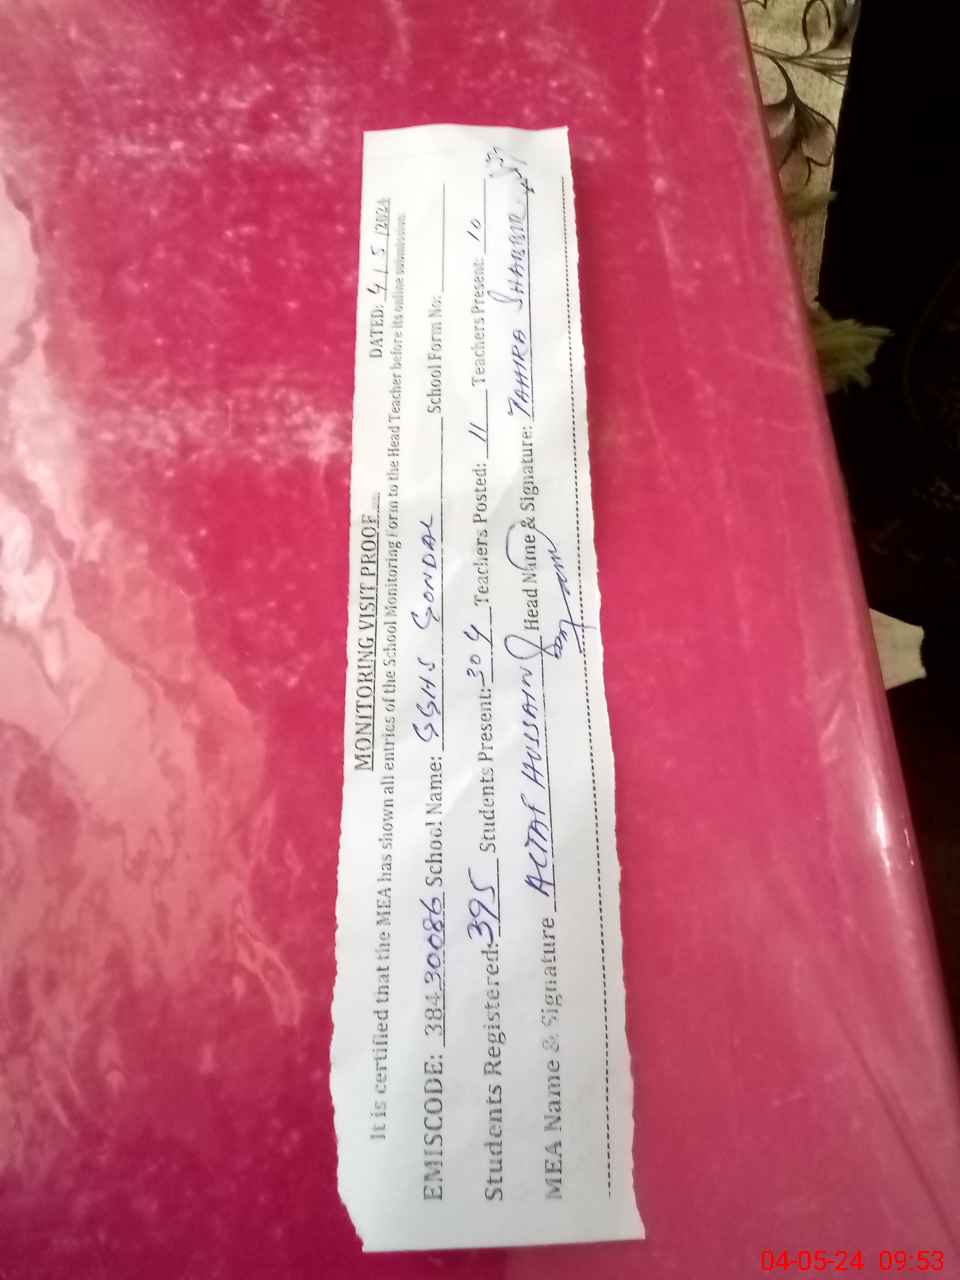 MONITORING VISIT PROOF
DATED: 4/5/2024
It is certified that the MEA has shown all entries of the School Monitoring Form to the Head Teacher before its online submission.
EMISCODE: 38430086 School Name: GGHS GONDAL School Form No:
Students Registered: 395 Students Present: 304 Teachers Posted: 11 Teachers Present: 10
MEA Name & Signature ALTAF HUSSAIN Head Name & Signature: TAHIRA SHAHEEN
04-05-24 09:53